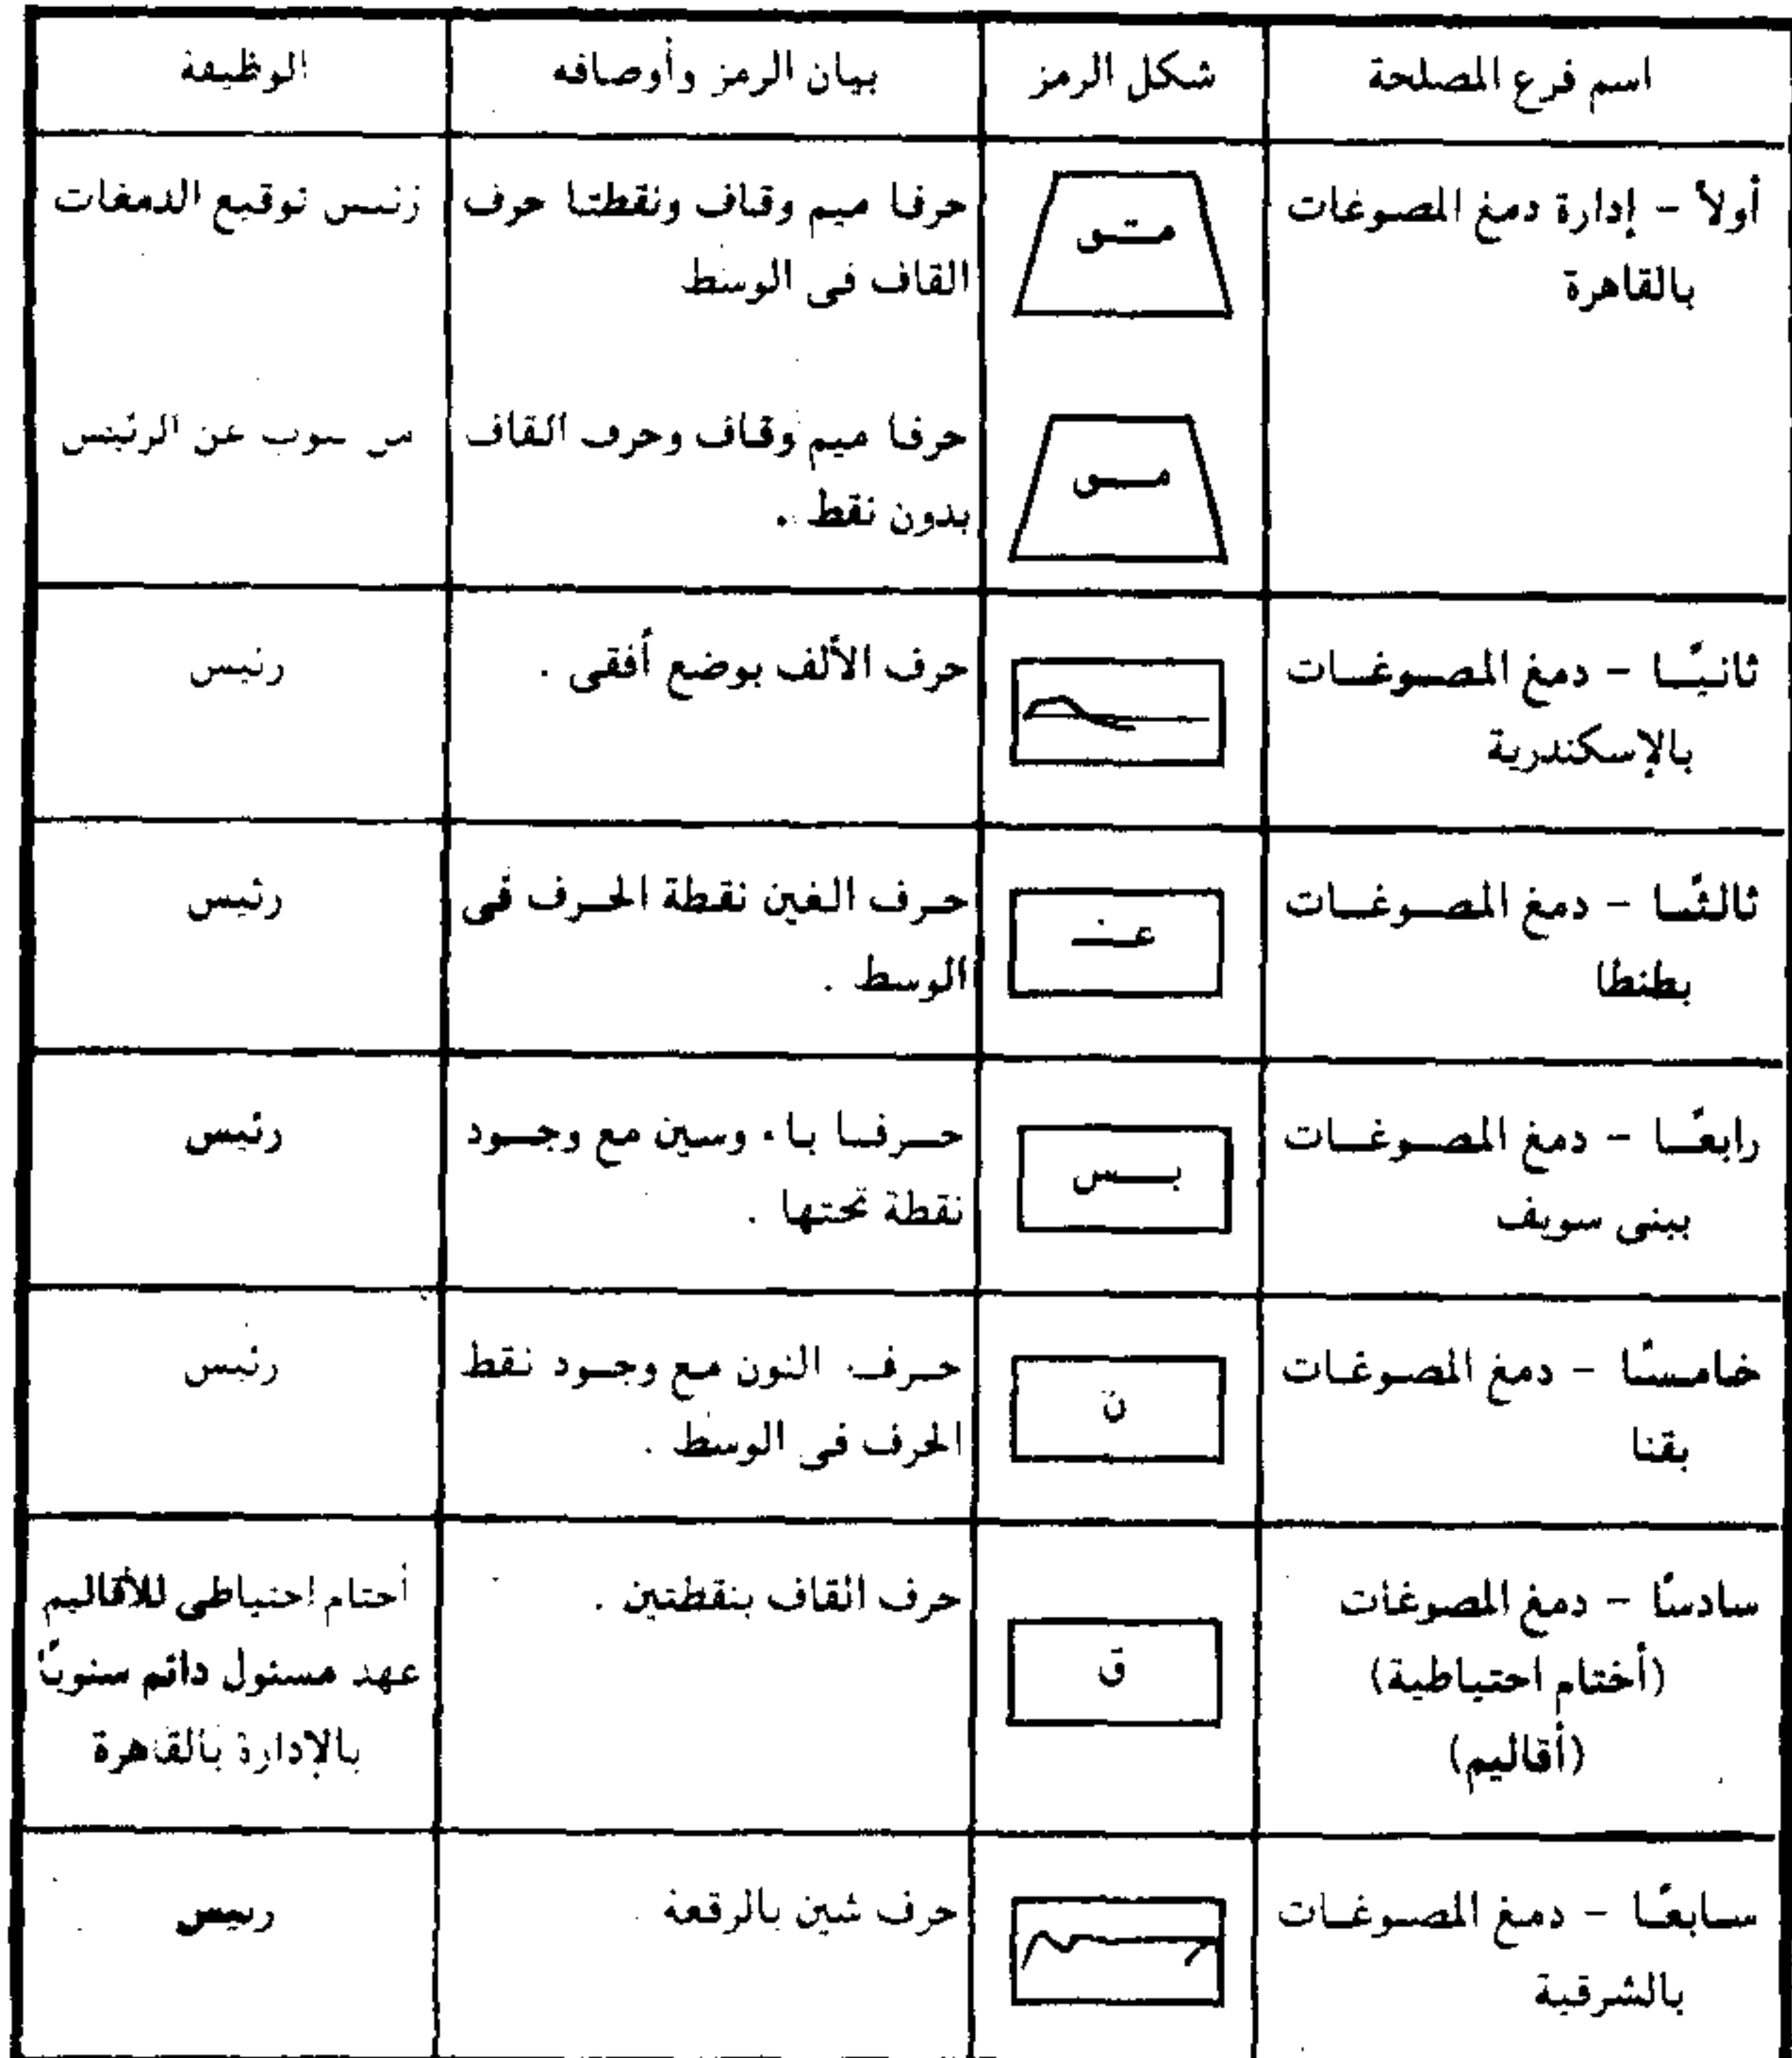 اسم فرع المصلحة
شكل الرمز
بيان الرمز وأوصافه
الوظيفة
أولاً – إدارة دمغ المصوغات
بالقاهرة
حرفا ميم وقاف ونقطتا حرف
القاف فى الوسط
توقيع الدمغات
حرفا ميم وقاف وحرف القاف
بدون نقط .
عن الرئيس
ثانيًا – دمغ المصوغات
بالإسكندرية
حرف الألف بوضع أفقى .
رئيس
ثالثًا – دمغ المصوغات
بطنطا
غ
حرف الغين نقطة الحرف فى
الوسط .
رئيس
رابعًا – دمغ المصوغات
ببنى سويف
بس
حرفا باء وسين مع وجود
نقطة تحتها .
رئيس
خامسًا – دمغ المصوغات
بقنا
ن
حرف النون مع وجود نقط
الحرف فى الوسط .
رئيس
سادسًا – دمغ المصوغات
(أختام احتياطية)
(أقاليم)
ق
حرف القاف بنقطتين .
أختام احتياطى للأقاليم
عهد مسئول دائم سنويًا
بالإدارة بالقاهرة
سابعًا – دمغ المصوغات
بالشرقية
حرف شين بالرقعة
رئيس